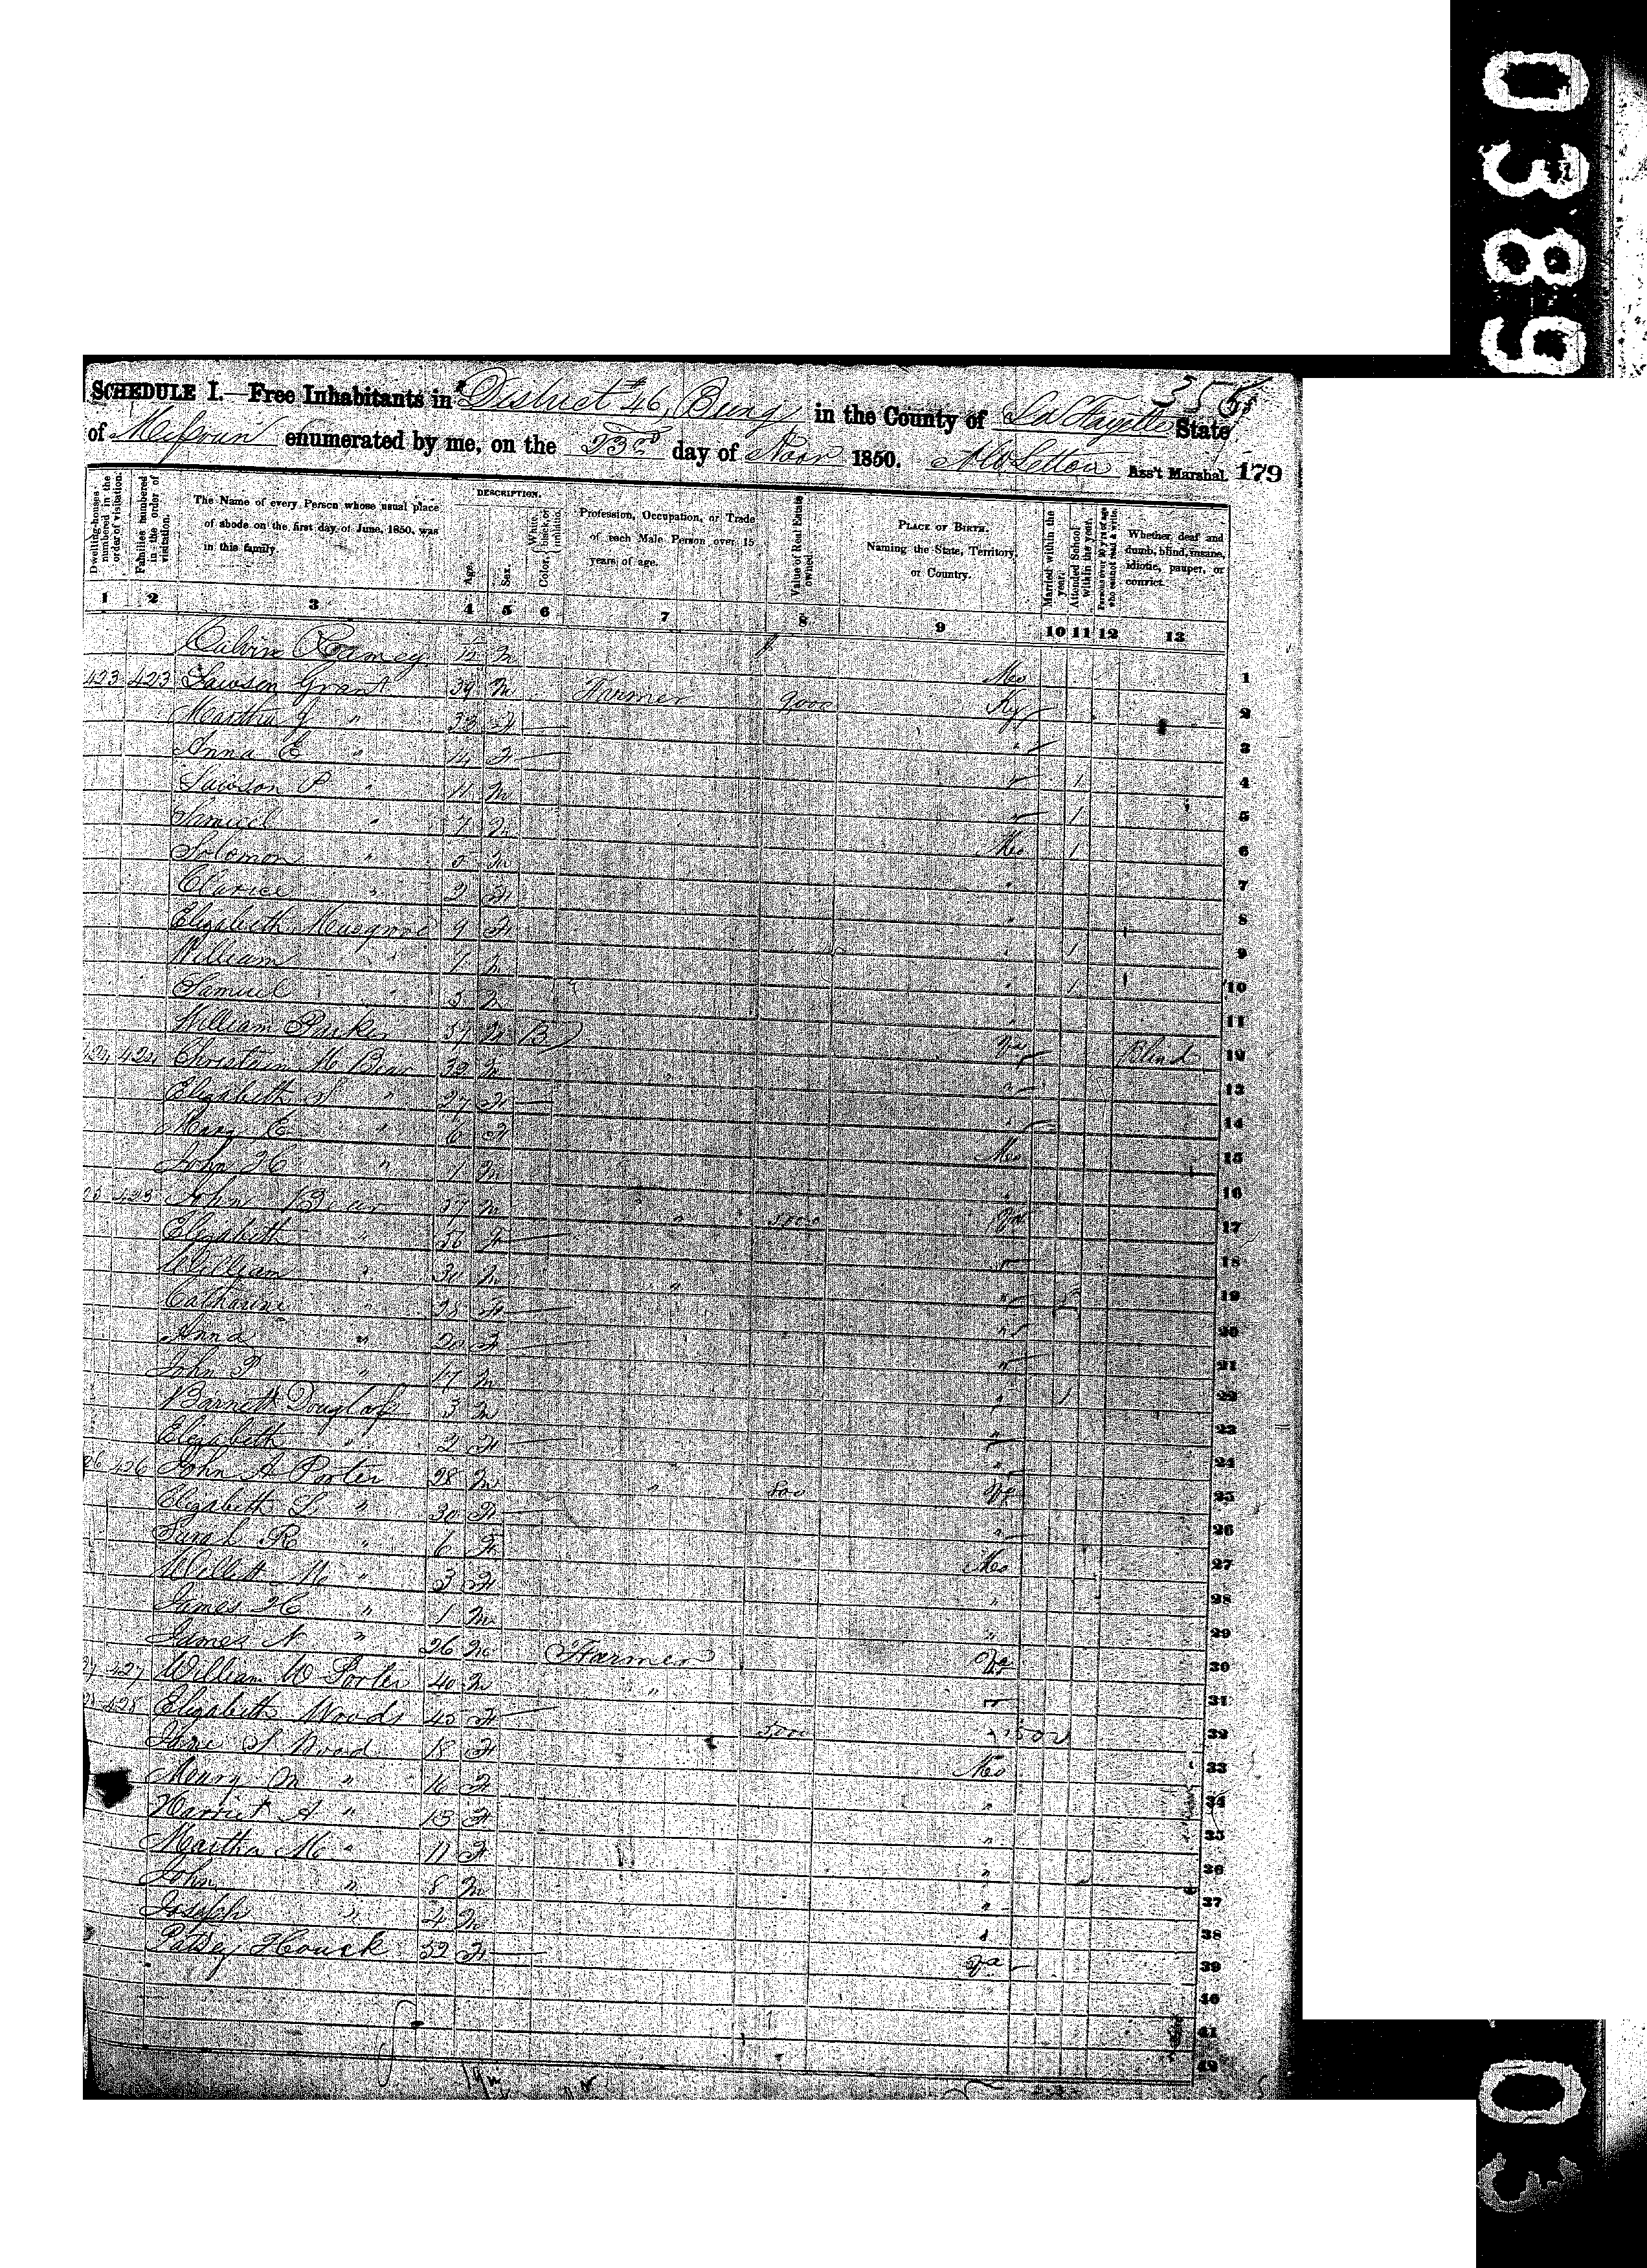 355
SCHEDULE I.—Free Inhabitants in District # 46, in the County of La Fayette State
of Missouri enumerated by me, on the 23rd day of Novr 1850. Ass't Marshal. 179
Dwelling-houses numbered in the order of visitation.
Families numbered in the order of visitation.
The Name of every Person whose usual place of abode on the first day of June, 1850, was in this family.
DESCRIPTION.
Age.
Sex.
Color, White, black, or mulatto.
Profession, Occupation, or Trade of each Male Person over 15 years of age.
Value of Real Estate owned.
PLACE OF BIRTH. Naming the State, Territory, or Country.
Married within the year.
Attended School within the year.
Persons over 20 y'rs of age who cannot read & write.
Whether deaf and dumb, blind, insane, idiotic, pauper, or convict.
1 2 3 4 5 6 7 8 9 10 11 12 13
Calvin Ramey 12 M Mo 1
423 423 Lawson Grant 39 M Farmer 9000 Ky 2
Martha J " 33 F " 3
Anna E " 14 F " 1 4
Lawson P " 11 M " 1 5
Samuel " 7 M Mo 1 6
Solomon " 5 M " 7
Clarice " 2 F " 8
Elizabeth Musgrove 9 F " 1 9
William " 7 M " 1 10
Samuel " 5 M " 11
William 57 M B Va Blind 12
424 424 Christian M Bear 32 M " 13
Elizabeth S " 27 F " 14
Mary E " 6 F Mo 15
John H " 1 M " 16
425 John Bear 57 M " 5000 Va 17
Elizabeth " 56 F " 18
William " 31 M " " 19
Catharine " 25 F " 20
Anna " 20 F " 21
John P " 17 M " 1 22
Barnett Douglass 3 M " 23
Elizabeth " 2 F " 24
26 426 John A Porter 28 M " 800 Va 25
Elizabeth L " 30 F " 26
Sarah R " 6 F Mo 27
Willett M " 3 F " 28
James H " 1 M " 29
James N " 26 M Farmer Va 30
27 427 William W Porter 40 M " " 31
28 428 Elizabeth Woods 45 F 5000 " 32
Jane S Wood 18 F Mo 33
M " 16 F " 34
Harriet A " 13 F " 35
Martha M " 11 F " 36
John " 8 M " 37
Joseph " 4 M " 38
Patsey Houck 52 F Va 39
40
41
42